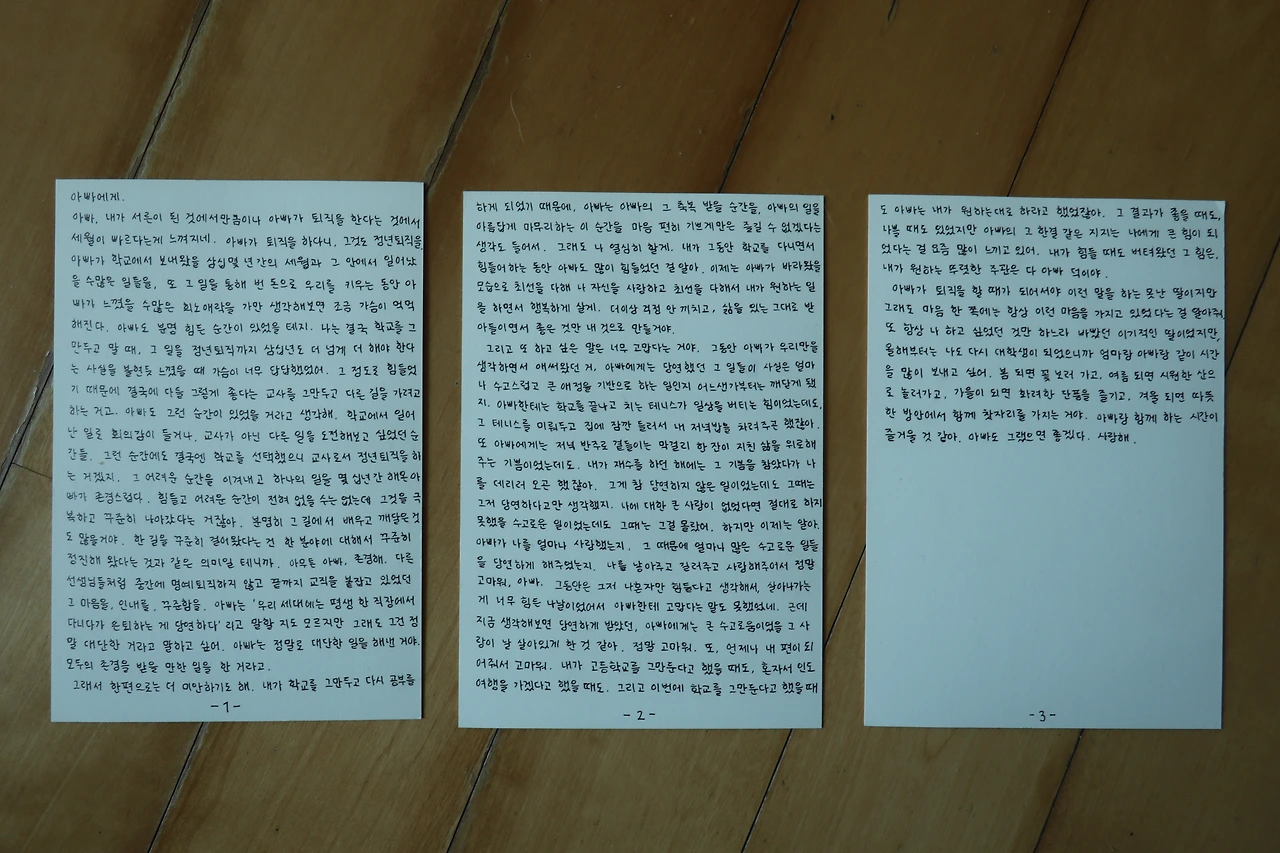 아빠에게.
아빠, 내가 서른이 된 것에서만큼이나 아빠가 퇴직을 한다는 것에서
세월이 빠르다는게 느껴지네. 아빠가 퇴직을 하다니, 그것도 정년퇴직을.
아빠가 학교에서 보내왔을 삼십몇 년간의 세월과 그 안에서 일어났
을 수많은 일들을, 또 그 일을 통해 번 돈으로 우리를 키우는 동안 아
빠가 느꼈을 수많은 희노애락을 가만 생각해보면 조금 가슴이 먹먹
해진다. 아빠도 분명 힘든 순간이 있었을 테지. 나는 결국 학교를 그
만두고 말 때, 그 일을 정년퇴직까지 삼십년도 더 넘게 더 해야 한다
는 사실을 불현듯 느꼈을 때 가슴이 너무 답답했었어. 그 정도로 힘들었
기 때문에 결국에 다들 그렇게 좋다는 교사를 그만두고 다른 길을 가려고
하는 거고. 아빠도 그런 순간이 있었을 거라고 생각해. 학교에서 일어
난 일로 회의감이 들거나, 교사가 아닌 다른 일을 도전해보고 싶었던 순
간들. 그런 순간에도 결국엔 학교를 선택했으니 교사로서 정년퇴직을 하
는 거겠지. 그 어려운 순간을 이겨내고 하나의 일을 몇 십년간 해온 아
빠가 존경스럽다. 힘들고 어려운 순간이 전혀 없을 수는 없는데 그것을 극
복하고 꾸준히 나아갔다는 거잖아. 분명히 그 길에서 배우고 깨달은 것
도 많을거야. 한 길을 꾸준히 걸어왔다는 건 한 분야에 대해서 꾸준히
정진해 왔다는 것과 같은 의미일 테니까. 아무튼 아빠, 존경해. 다른
선생님들처럼 중간에 명예퇴직하지 않고 끝까지 교직을 붙잡고 있었던
그 마음을, 인내를, 꾸준함을. 아빠는 '우리 세대에는 평생 한 직장에서
다니다가 은퇴하는 게 당연하다' 라고 말할 지도 모르지만 그래도 그건 정
말 대단한 거라고 말하고 싶어. 아빠는 정말로 대단한 일을 해낸 거야.
모두의 존경을 받을 만한 일을 한 거라고.
그래서 한편으로는 더 미안하기도 해. 내가 학교를 그만두고 다시 공부를
-1-
하게 되었기 때문에, 아빠는 아빠의 그 축복 받을 순간을, 아빠의 일을
아름답게 마무리하는 이 순간을 마음 편히 기쁘게만은 즐길 수 없겠다는
생각도 들어서. 그래도 나 열심히 할게. 내가 그동안 학교를 다니면서
힘들어하는 동안 아빠도 많이 힘들었던 걸 알아. 이제는 아빠가 바라왔을
모습으로 최선을 다해 나 자신을 사랑하고 최선을 다해서 내가 원하는 일
을 하면서 행복하게 살게. 더이상 걱정 안 끼치고, 삶을 있는 그대로 받
아들이면서 좋은 것만 내 것으로 만들거야.
그리고 또 하고 싶은 말은 너무 고맙다는 거야. 그동안 아빠가 우리만을
생각하면서 애써왔던 거, 아빠에게는 당연했던 그 일들이 사실은 얼마
나 수고스럽고 큰 애정을 기반으로 하는 일인지 어느샌가부터는 깨닫게 됐
지. 아빠한테는 학교를 끝나고 치는 테니스가 일상을 버티는 힘이었는데도,
그 테니스를 미뤄두고 집에 잠깐 들러서 내 저녁밥을 차려주곤 했잖아.
또 아빠에게는 저녁 반주로 곁들이는 막걸리 한 잔이 지친 삶을 위로해
주는 기쁨이었는데도. 내가 재수를 하던 해에는 그 기쁨을 참았다가 나
를 데리러 오곤 했잖아. 그게 참 당연하지 않은 일이었는데도 그때는
그저 당연하다고만 생각했지. 나에 대한 큰 사랑이 없었다면 절대로 하지
못했을 수고로운 일이었는데도 그때는 그걸 몰랐어. 하지만 이제는 알아.
아빠가 나를 얼마나 사랑했는지. 그 때문에 얼마나 많은 수고로운 일들
을 당연하게 해주었는지. 나를 낳아주고 길러주고 사랑해주어서 정말
고마워, 아빠. 그동안은 그저 나혼자만 힘들다고 생각해서, 살아나가는
게 너무 힘든 나날이었어서 아빠한테 고맙다는 말도 못했었네. 근데
지금 생각해보면 당연하게 받았던, 아빠에게는 큰 수고로움이었을 그 사
랑이 날 살아있게 한 것 같아. 정말 고마워. 또, 언제나 내 편이 되
어줘서 고마워. 내가 고등학교를 그만둔다고 했을 때도, 혼자서 인도
여행을 가겠다고 했을 때도. 그리고 이번에 학교를 그만둔다고 했을때
-2-
도 아빠는 내가 원하는대로 하라고 했었잖아. 그 결과가 좋을 때도,
나쁠 때도 있었지만 아빠의 그 한결 같은 지지는 나에게 큰 힘이 되
었다는 걸 요즘 많이 느끼고 있어. 내가 힘들 때도 버텨왔던 그 힘은,
내가 원하는 뚜렷한 주관은 다 아빠 덕이야.
아빠가 퇴직을 할 때가 되어서야 이런 말을 하는 못난 딸이지만
그래도 마음 한 쪽에는 항상 이런 마음을 가지고 있었다는 걸 알아줘.
또 항상 나 하고 싶었던 것만 하느라 바빴던 이기적인 딸이었지만,
올해부터는 나도 다시 대학생이 되었으니까 엄마랑 아빠랑 같이 시간
을 많이 보내고 싶어. 봄 되면 꽃 보러 가고, 여름 되면 시원한 산으
로 놀러가고, 가을이 되면 화려한 단풍을 즐기고, 겨울 되면 따뜻
한 방안에서 함께 찻자리를 가지는 거야. 아빠랑 함께 하는 시간이
즐거울 것 같아. 아빠도 그랬으면 좋겠다. 사랑해.
-3-